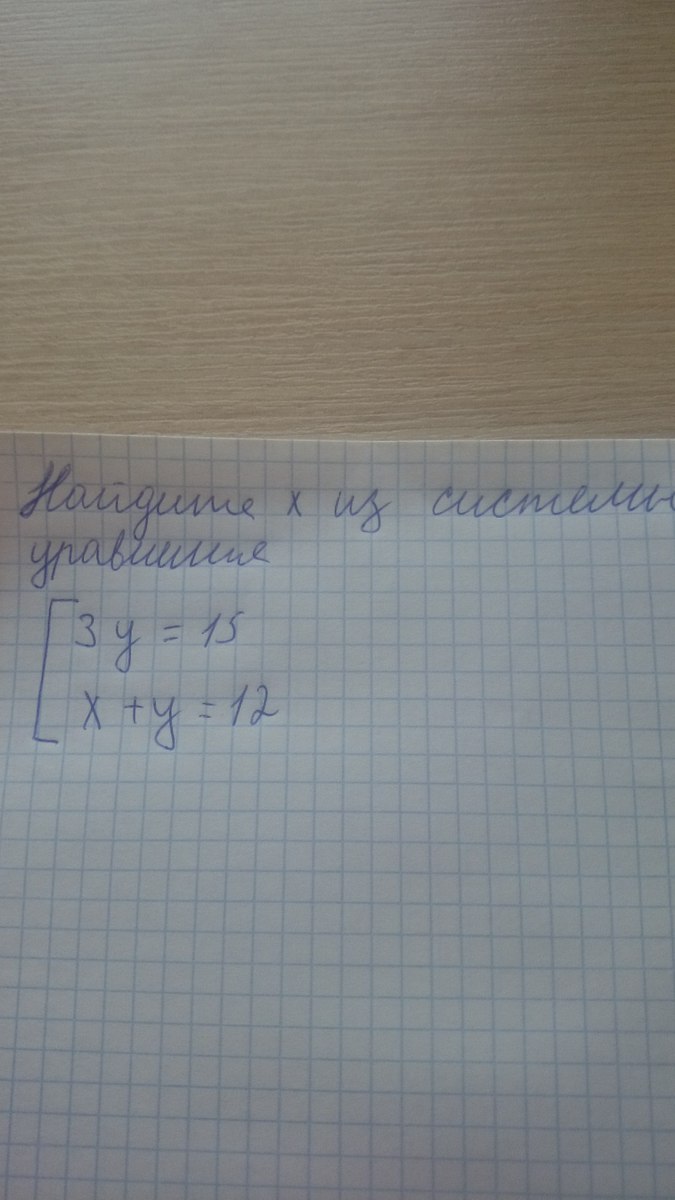 Найдите х из системы
уравнения
3y = 15
x + y = 12